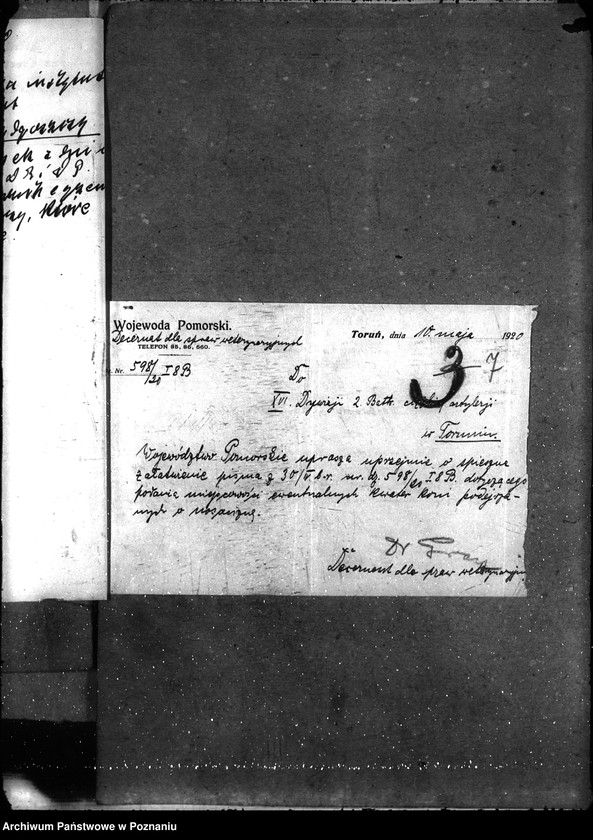 a instytut
ydgoszczy
ek z dni
D R. i D P.
zy, które
Wojewoda Pomorski.
Decernat dla spraw weterynaryjnych
TELEFON 85, 86, 660.
Nr. 598/20 I 8 B
Toruń, dnia 10. maja 1920
3 7
Do
XVI. Dywizji 2. Bath. ciężkiej artylerji
w Toruniu.
Województwo Pomorskie uprasza uprzejmie o śpieszne
załatwienie pisma z 30/ b.r. nr. dz. 598/20 I 8 B. dotyczącego
podania miejscowości ewentualnych kwater koni podejrza-
nych o nosaciznę.
Dr
Decernent dla spraw weterynaryjn
Archiwum Państwowe w Poznaniu